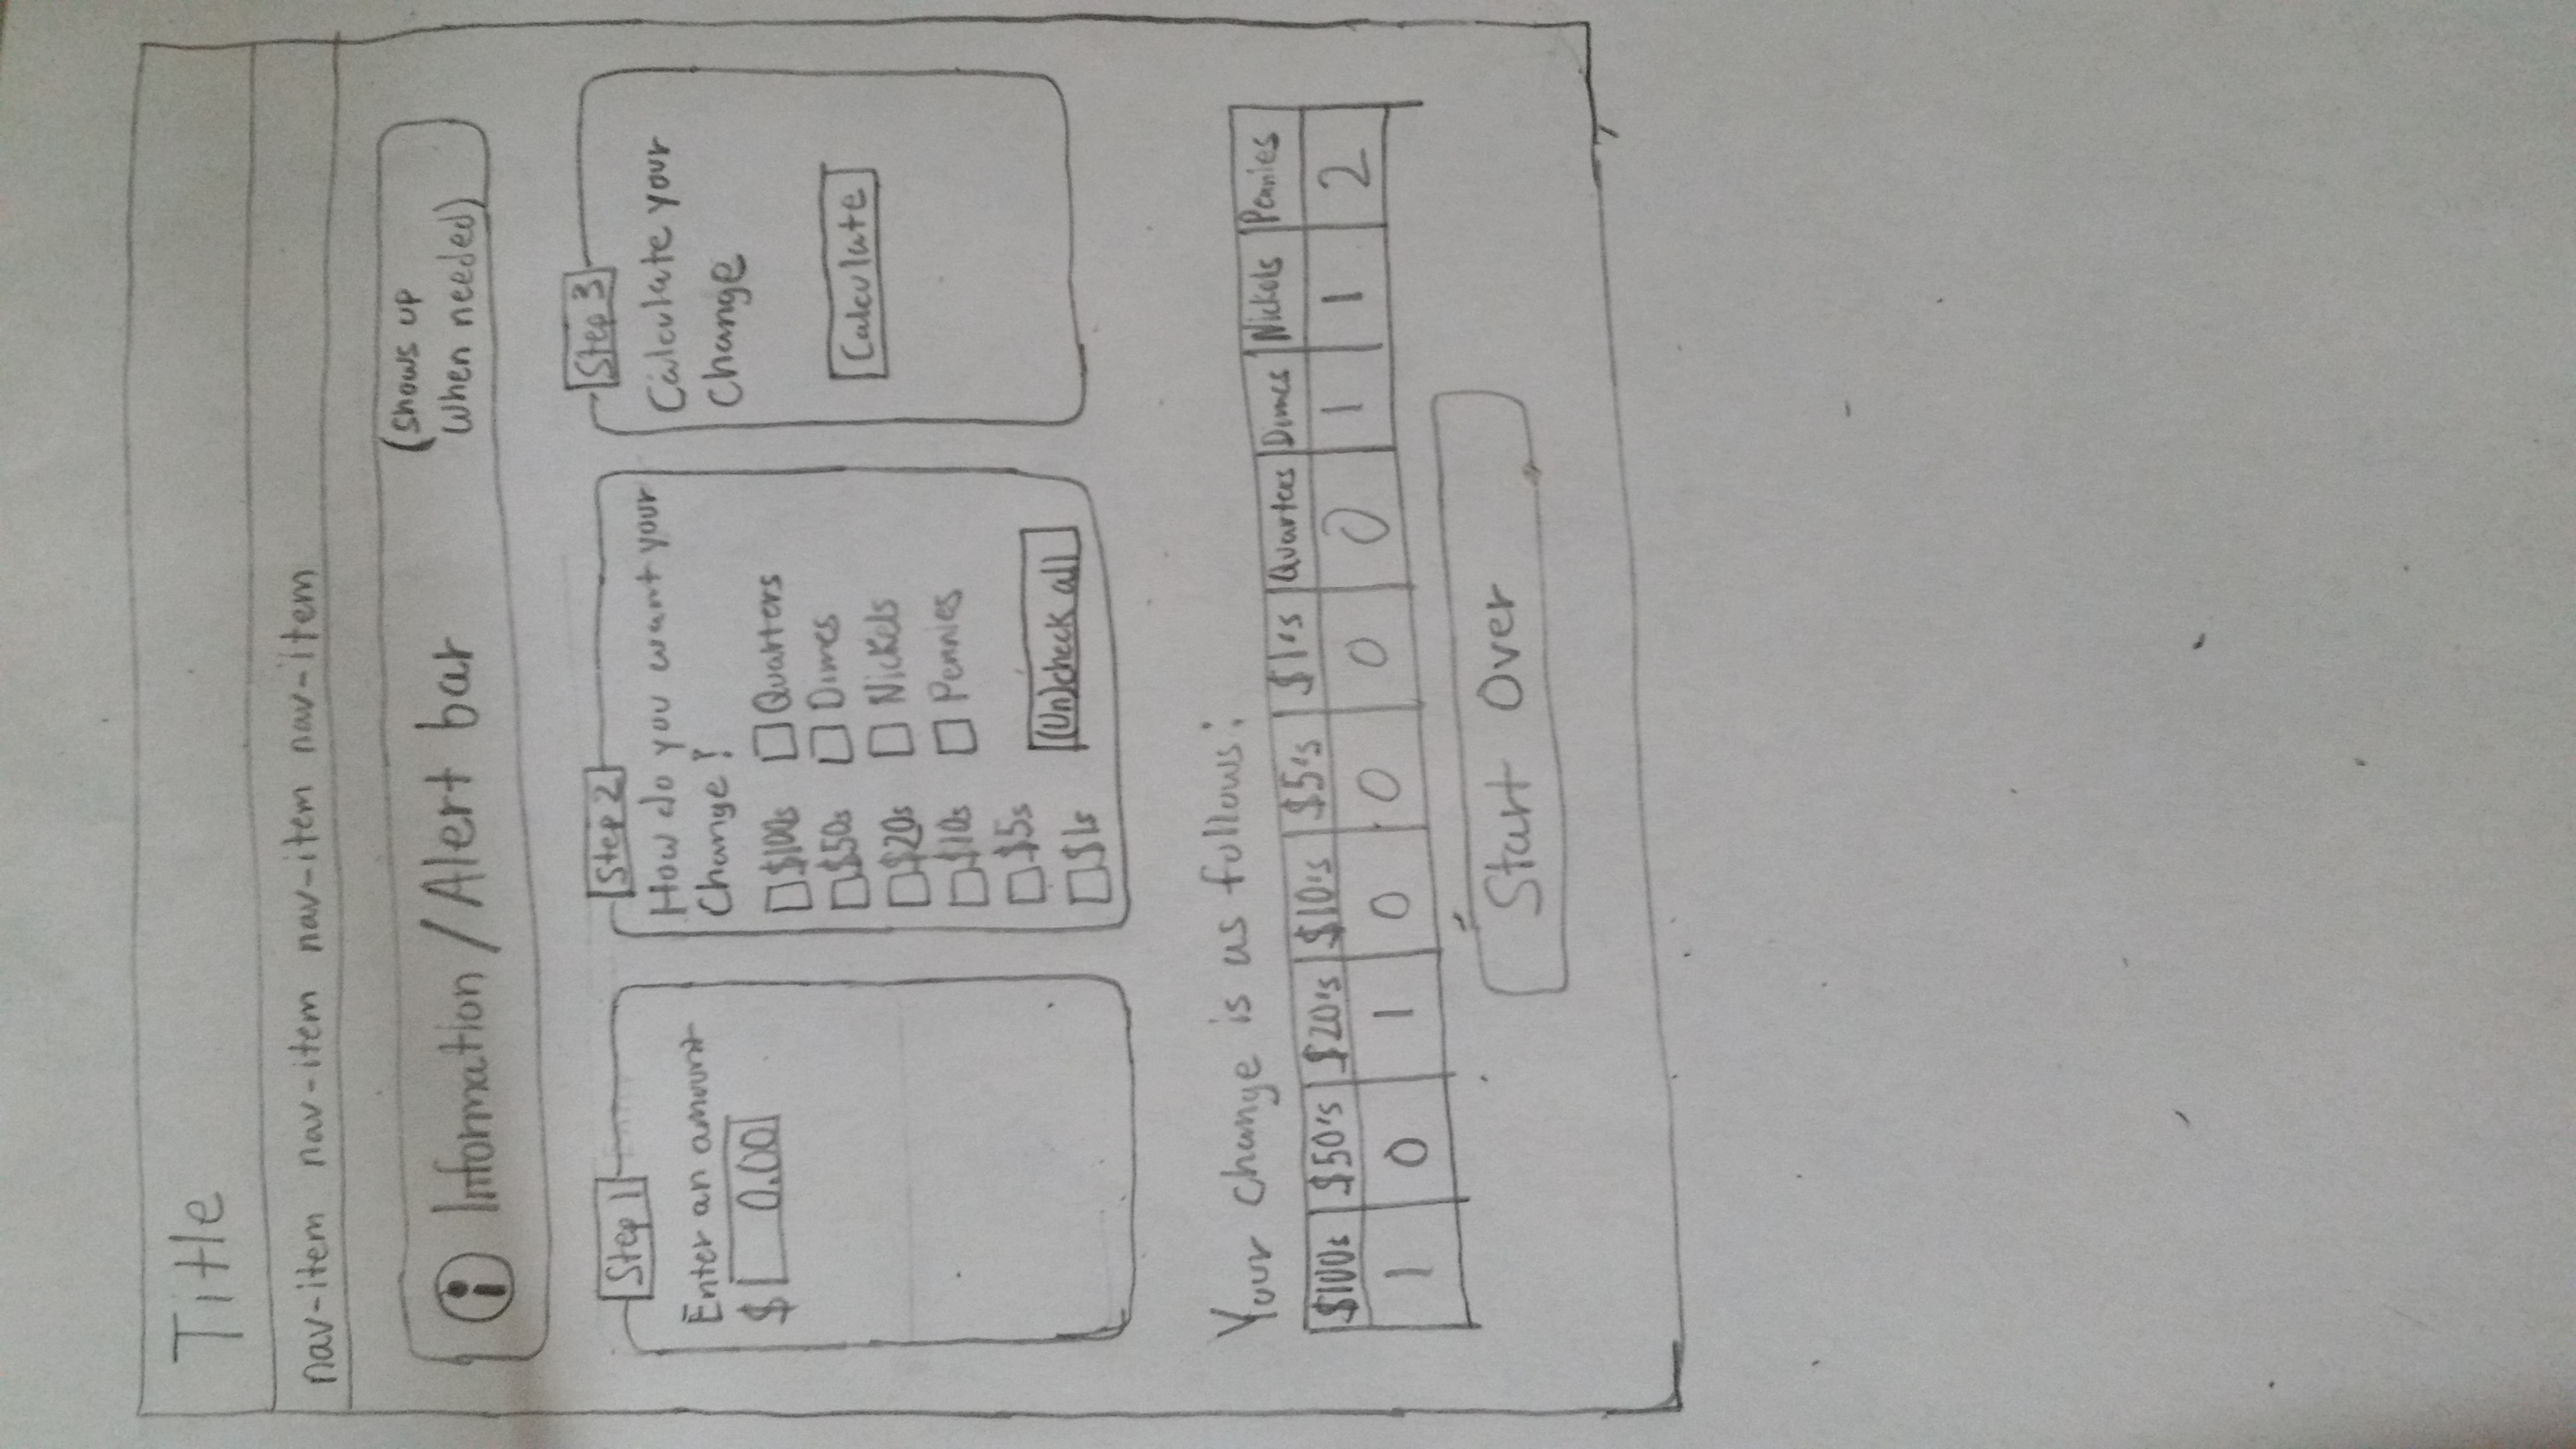 Title
nav-item nav-item nav-item nav-item
i Information / Alert bar
(Shows up
when needed)
Step 1
Enter an amount
$ 0.00
Step 2
How do you want your
Change?
$100s Quarters
$50s Dimes
$20s Nickels
$10s Pennies
$5s
$1s
(Un)check all
Step 3
Calculate your
Change
Calculate
Your change is as follows:
$100s $50's $20's $10's $5's $1's Quarters Dimes Nickels Pennies
1 0 1 0 0 0 0 1 1 2
Start Over